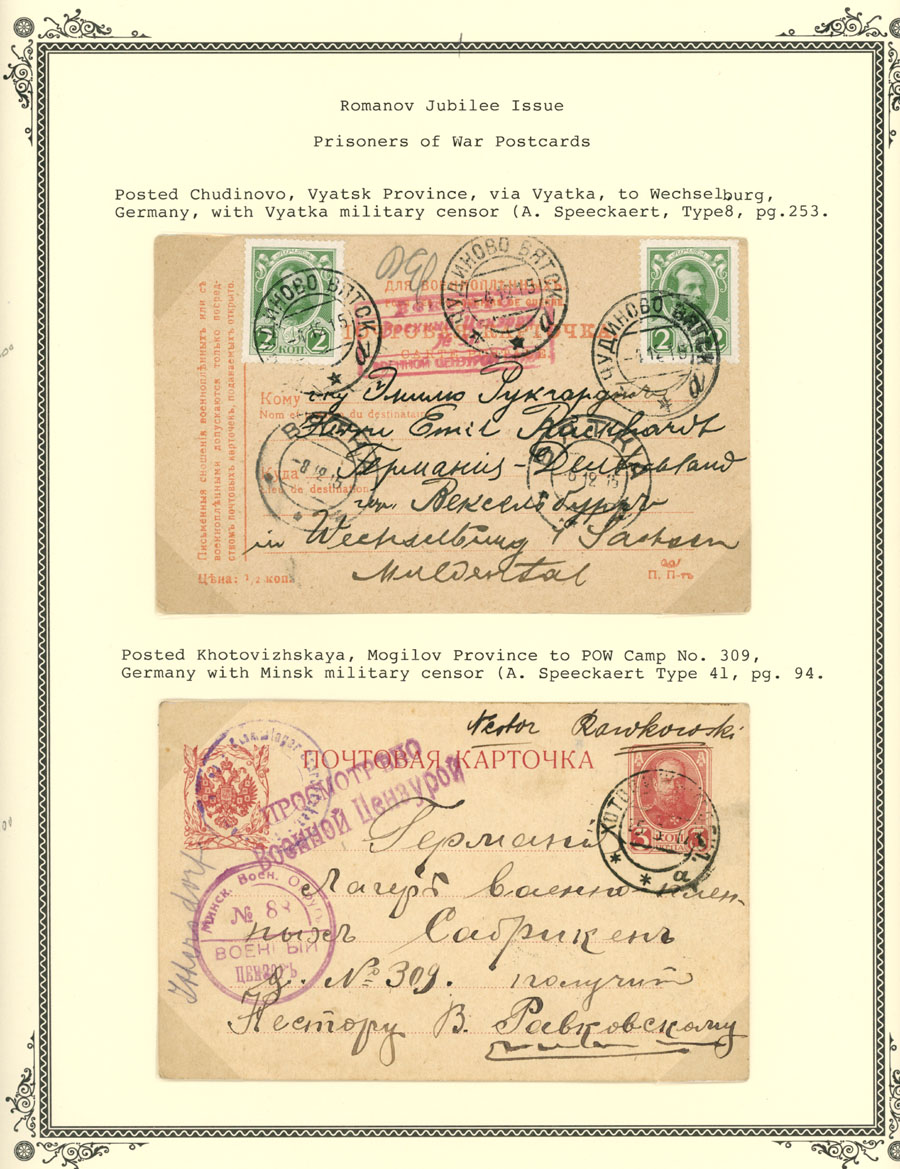 Romanov Jubilee Issue
Prisoners of War Postcards
Posted Chudinovo, Vyatsk Province, via Vyatka, to Wechselburg,
Germany, with Vyatka military censor (A. Speeckaert, Type8, pg.253.
2 КОП. 2
ЧУДИНОВО ВЯТСК
ЧУДИНОВО ВЯТСК
2 КОП. 2
ЧУДИНОВО ВЯТСК
ДЛЯ ВОЕННОПЛѢННЫХЪ
Военный Цензоръ
№
ВОЕННОЙ ЦЕНЗУРЫ
Письменныя сношенія военноплѣнныхъ или съ
военноплѣнными допускаются только посред-
ствомъ почтовыхъ карточекъ, подаваемыхъ открыто.
Кому
Nom et prénom du destinataire
Herrn Emil Ruckhardt
Куда
Германія - Deutschland
Lieu de destination
-8 12 15
in Wechselburg i/ Sachsen
Muldental
Цѣна: 1/2 коп.
П. П-тъ
Posted Khotovizhskaya, Mogilov Province to POW Camp No. 309,
Germany with Minsk military censor (A. Speeckaert Type 41, pg. 94.
Nestor Rawkowski
ПОЧТОВАЯ КАРТОЧКА
ПРОСМОТРѢНО
ВОЕННОЙ ЦЕНЗУРОЙ
Германія
Лагерь военно плен-
Минск. Воен. Округъ
№ 83
ВОЕННЫЙ
Цензоръ
ныхъ Сабрикенъ
д. № 309. получит
Нестору В. Равковскому